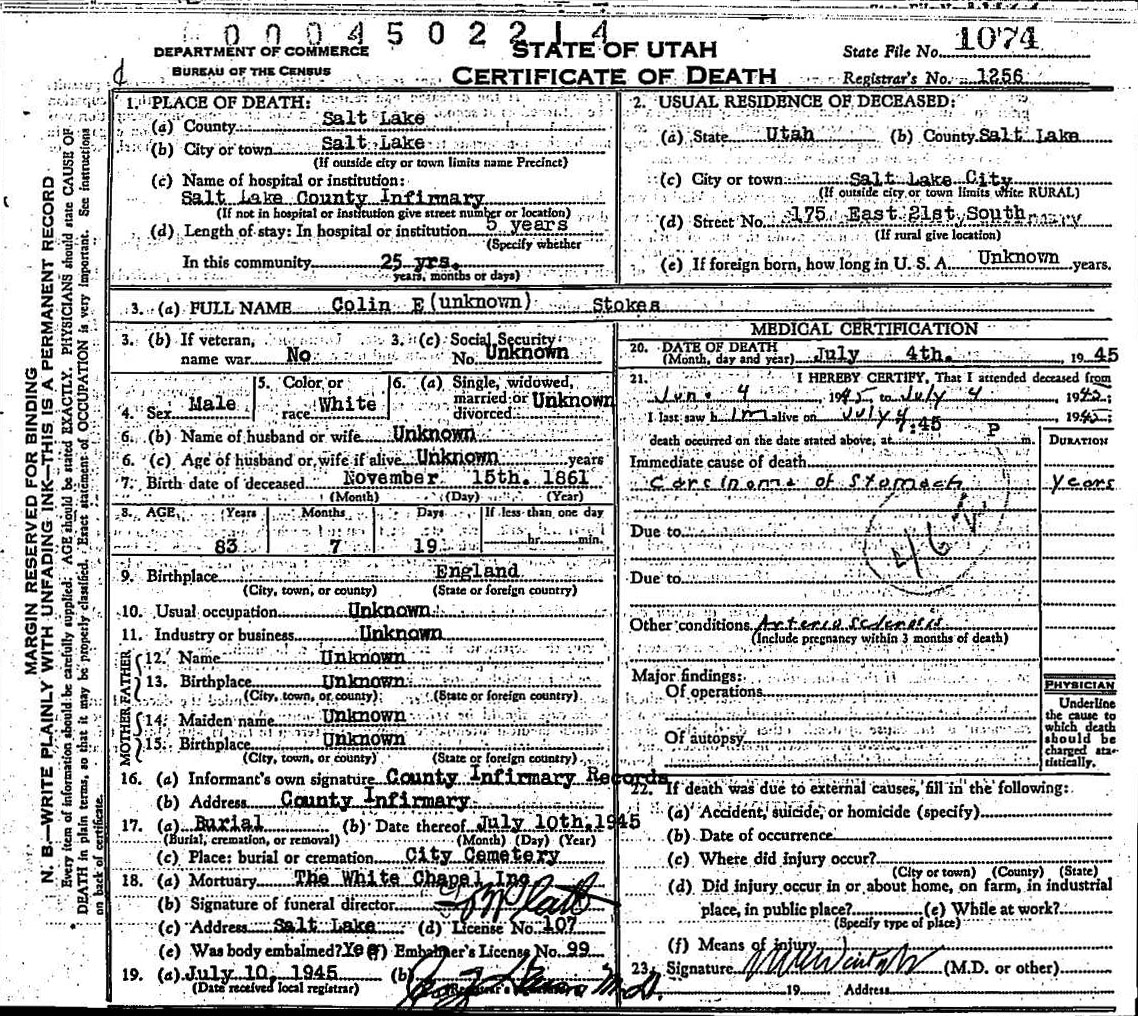 0004502214
DEPARTMENT OF COMMERCE
BUREAU OF THE CENSUS
STATE OF UTAH
CERTIFICATE OF DEATH
State File No. 1074
Registrar's No. 1256
MARGIN RESERVED FOR BINDING
N. B.—WRITE PLAINLY WITH UNFADING INK—THIS IS A PERMANENT RECORD
Every item of information should be carefully supplied. AGE should be stated EXACTLY. PHYSICIANS should state CAUSE OF
DEATH in plain terms, so that it may be properly classified. Exact statement of OCCUPATION is very important. See instructions
on back of certificate.
1. PLACE OF DEATH:
(a) County Salt Lake
(b) City or town Salt Lake
(If outside city or town limits name Precinct)
(c) Name of hospital or institution:
Salt Lake County Infirmary
(If not in hospital or institution give street number or location)
(d) Length of stay: In hospital or institution 5 years
(Specify whether
In this community 25 yrs.
years, months or days)
2. USUAL RESIDENCE OF DECEASED:
(a) State Utah (b) County Salt Lake
(c) City or town Salt Lake City
(If outside city or town limits write RURAL)
(d) Street No. 175 East 21st South
(If rural give location)
(e) If foreign born, how long in U. S. A. Unknown years.
3. (a) FULL NAME Colin E (unknown) Stokes
3. (b) If veteran, name war No
3. (c) Social Security No. Unknown
4. Sex Male
5. Color or race White
6. (a) Single, widowed, married or divorced Unknown
6. (b) Name of husband or wife Unknown
6. (c) Age of husband or wife if alive Unknown years
7. Birth date of deceased November 15th. 1861
(Month) (Day) (Year)
8. AGE Years Months Days If less than one day
83 7 19 hr. min.
9. Birthplace England
(City, town, or county) (State or foreign country)
10. Usual occupation Unknown
11. Industry or business Unknown
FATHER
12. Name Unknown
13. Birthplace Unknown
(City, town, or county) (State or foreign country)
MOTHER
14. Maiden name Unknown
15. Birthplace Unknown
(City, town, or county) (State or foreign country)
16. (a) Informant's own signature County Infirmary Records
(b) Address County Infirmary
17. (a) Burial (b) Date thereof July 10th. 1945
(Burial, cremation, or removal) (Month) (Day) (Year)
(c) Place: burial or cremation City Cemetery
18. (a) Mortuary The White Chapel Inc
(b) Signature of funeral director
(c) Address Salt Lake (d) License No. 107
(e) Was body embalmed? Yes (f) Embalmer's License No. 99
19. (a) July 10, 1945 (b) M.D.
(Date received local registrar)
MEDICAL CERTIFICATION
20. DATE OF DEATH
(Month, day and year) July 4th. , 1945
21. I HEREBY CERTIFY, That I attended deceased from
Jun. 4 1945, to July 4, 1945;
I last saw him alive on July 4 1945;
death occurred on the date stated above, at 7:45 P m.
DURATION
Immediate cause of death
Carcinoma of Stomach years
462
Due to
Due to
Other conditions Arterio sclerosis
(Include pregnancy within 3 months of death)
Major findings:
Of operations
Of autopsy
PHYSICIAN
Underline
the cause to
which death
should be
charged sta-
tistically.
22. If death was due to external causes, fill in the following:
(a) Accident, suicide, or homicide (specify)
(b) Date of occurrence
(c) Where did injury occur?
(City or town) (County) (State)
(d) Did injury occur in or about home, on farm, in industrial
place, in public place? (e) While at work?
(Specify type of place)
(f) Means of injury
23. Signature (M.D. or other)
19 Address